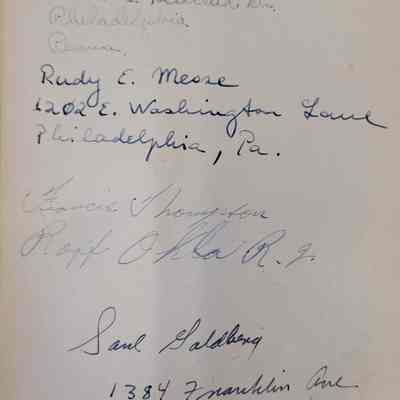 Philadelphia
Penna.
Rudy E. Messe
1202 E. Washington Lane
Philadelphia, Pa.
Francis Thompson
Saul Goldberg
1384 Franklin Ave